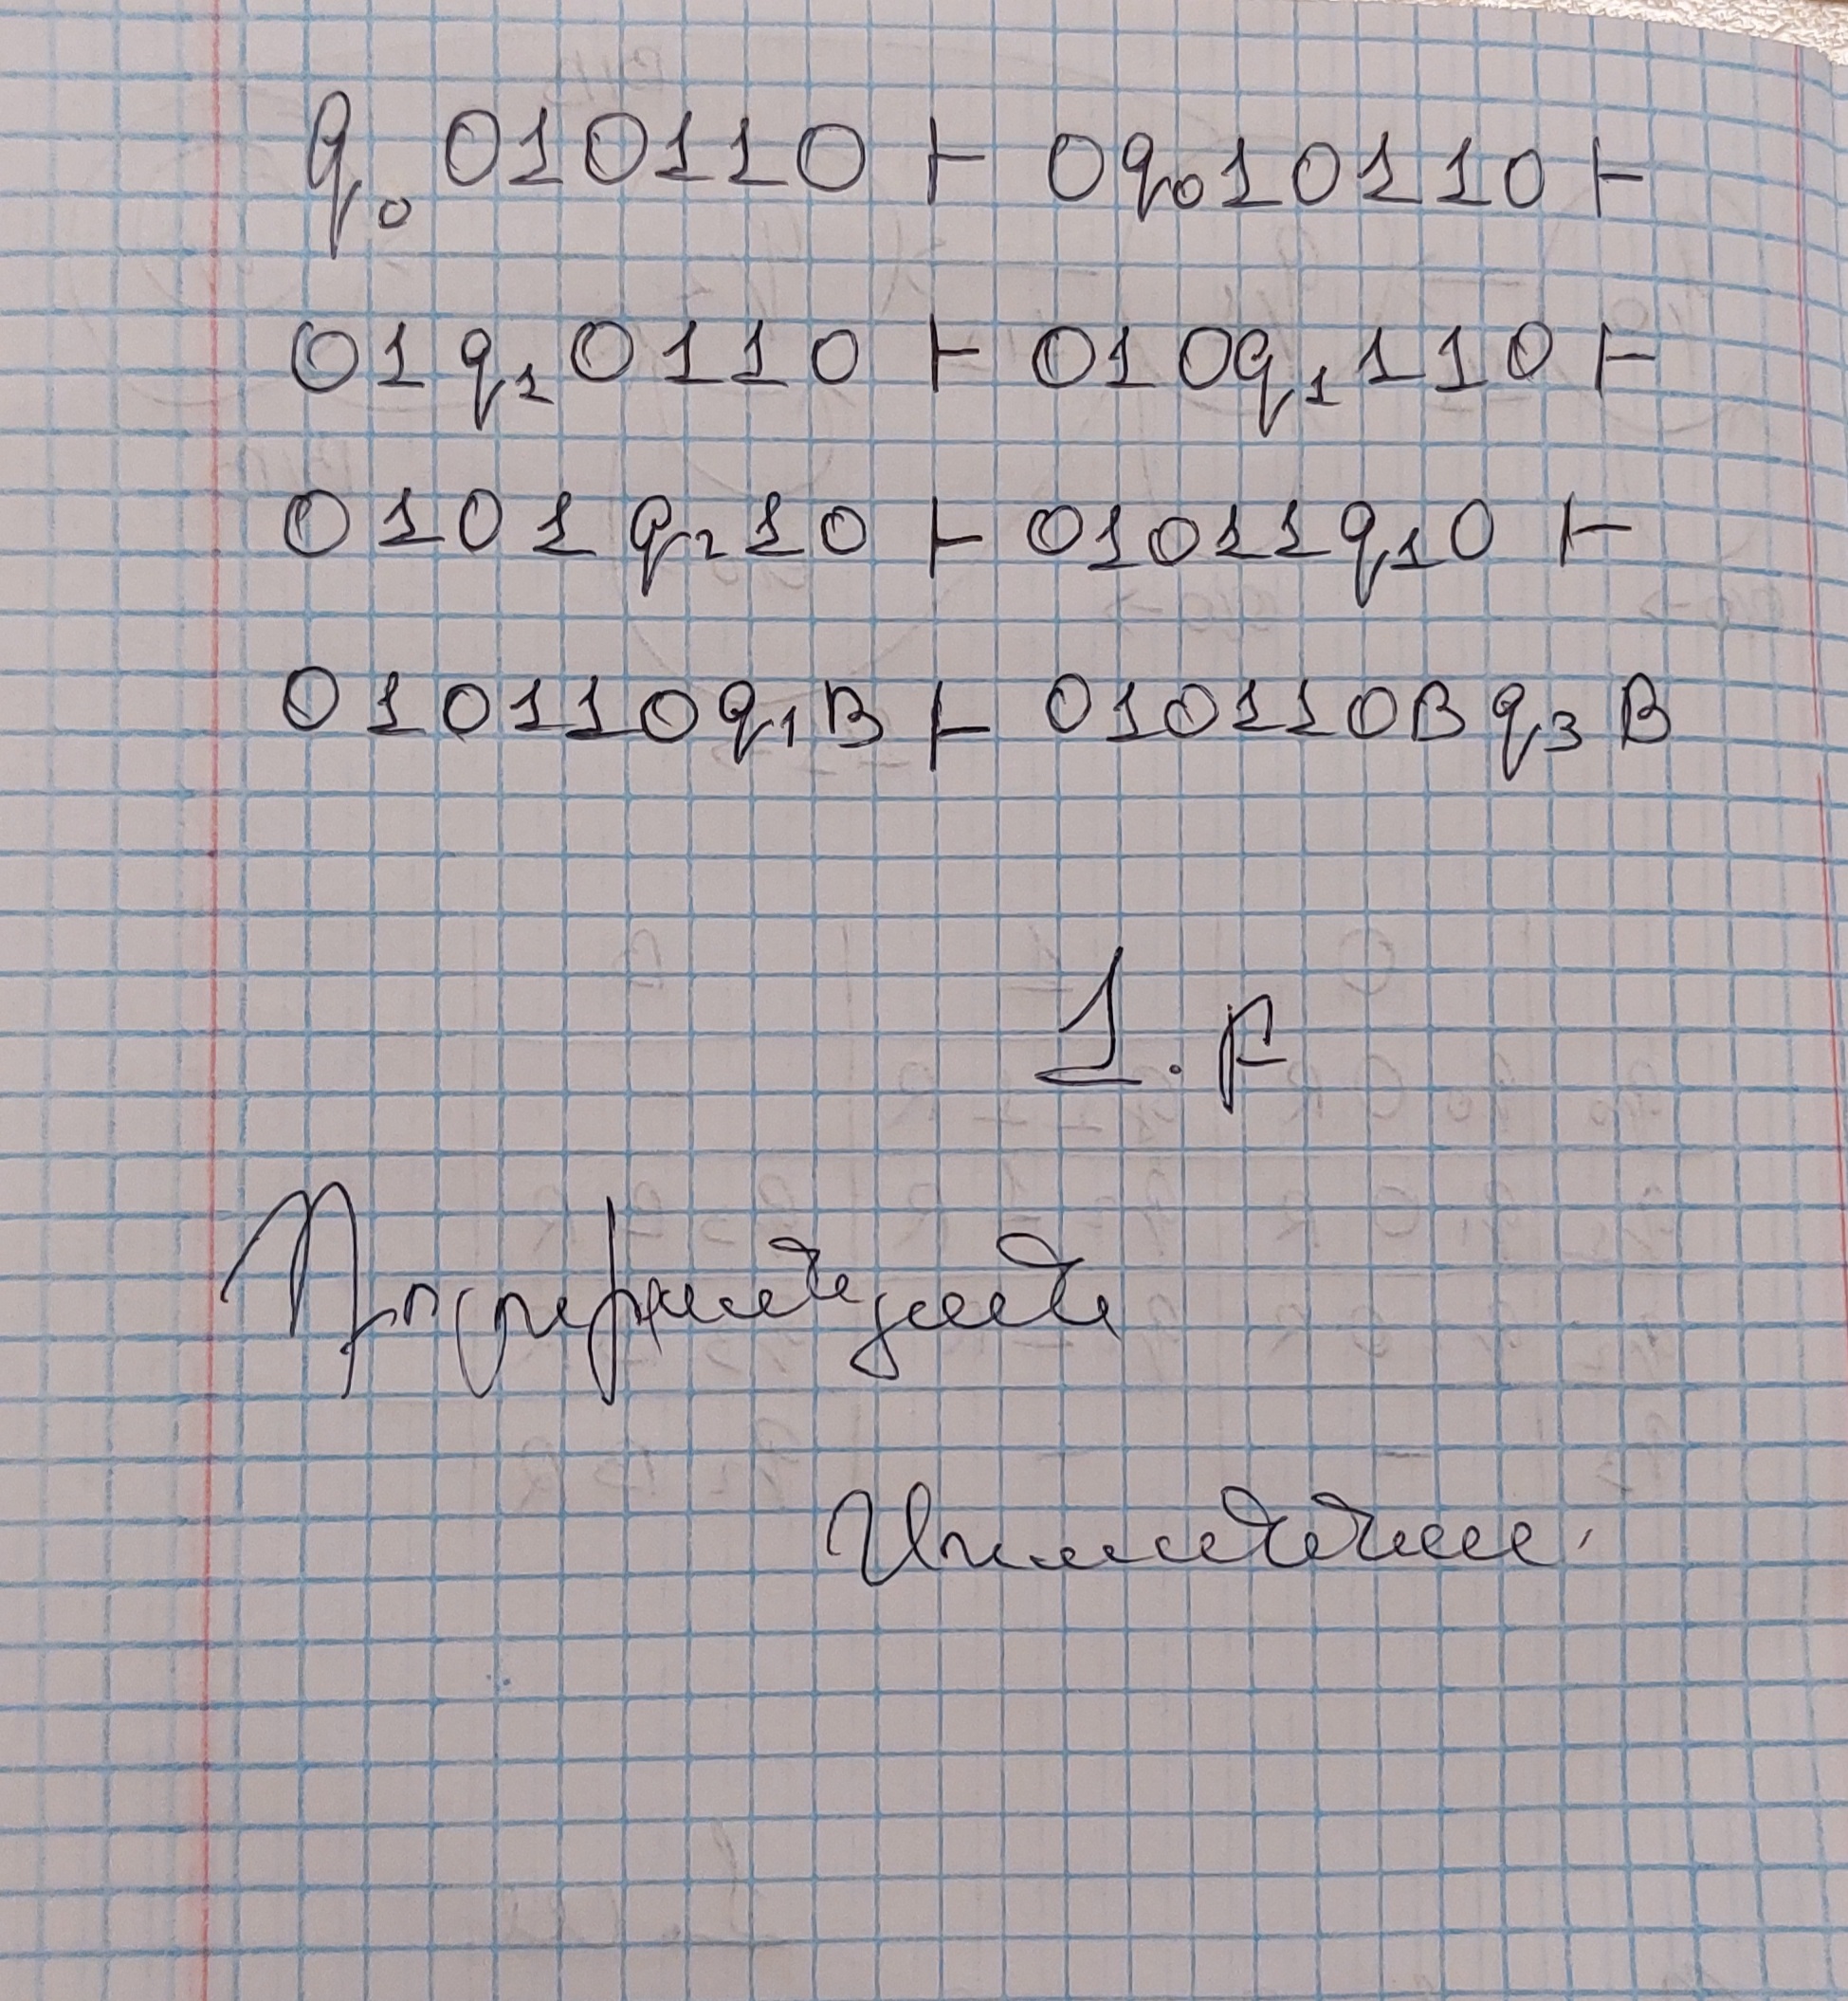 q₀ 010110 ⊢ 0q₀10110 ⊢
01q₁0110 ⊢ 010q₁110 ⊢
0101q₂10 ⊢ 01011q₁0 ⊢
010110q₁B ⊢ 010110Bq₃B
1. F